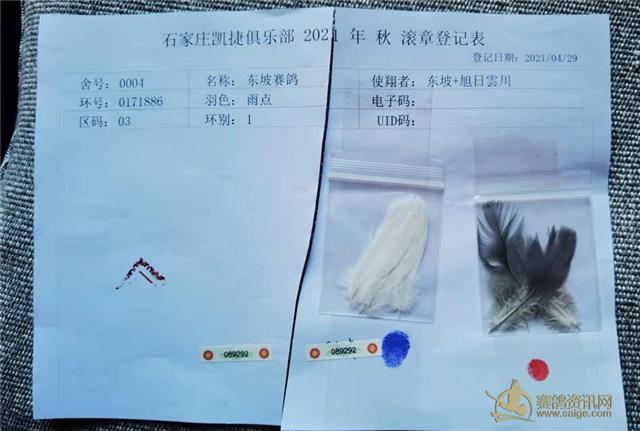 石家庄凯捷俱乐部 2021 年 秋 滚章登记表
登记日期：2021/04/29
舍号：0004 名称：东坡赛鸽 使翔者：东坡+旭日雲川
环号：0171886 羽色：雨点 电子码：
区码：03 环别：1 UID码：
089292 089292
赛鸽资讯网
www.saige.com